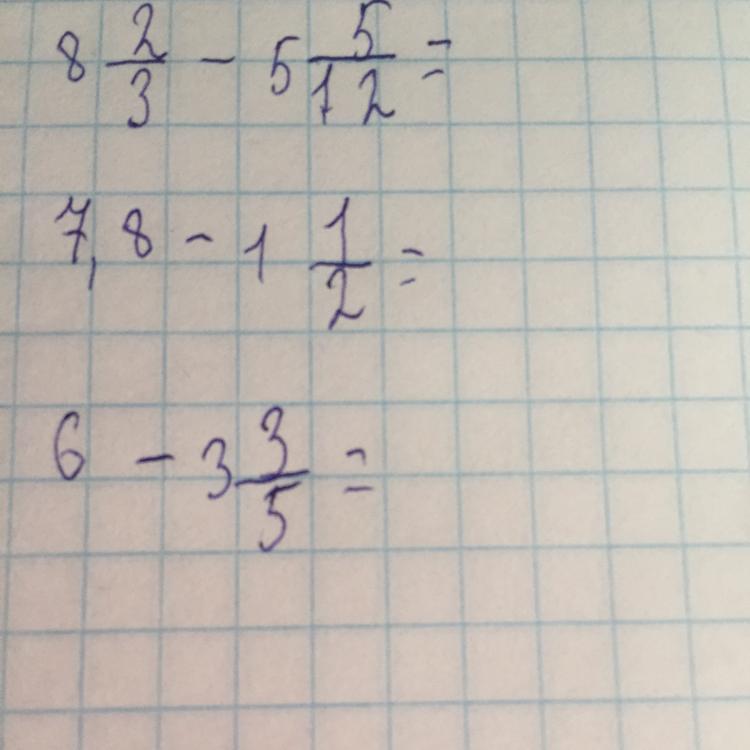 8 2/3 - 5 5/12 =
7,8 - 1 1/2 =
6 - 3 3/5 =